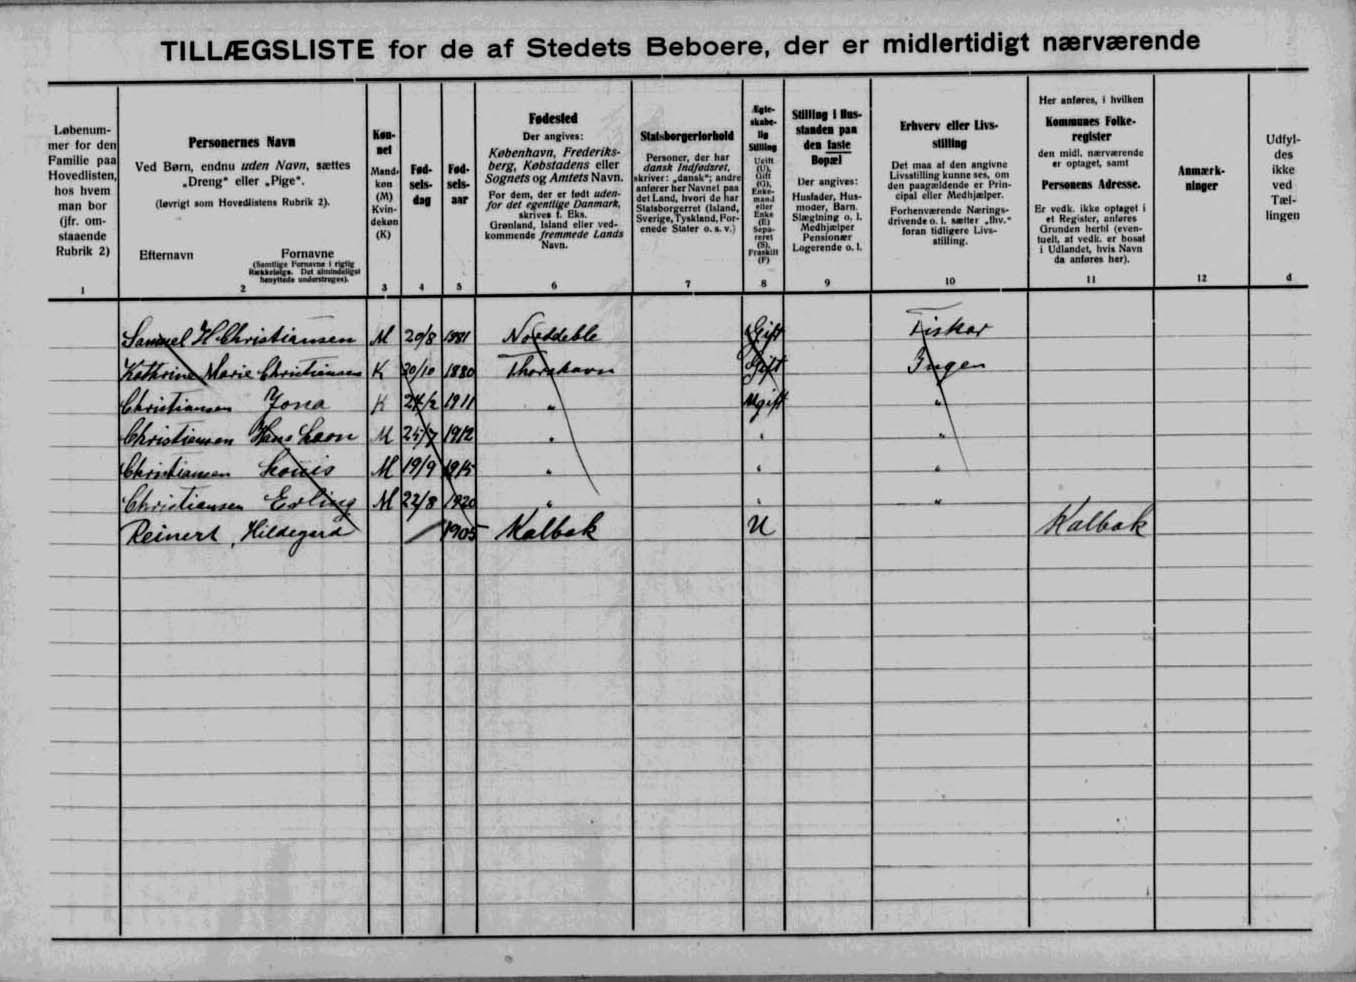 TILLÆGSLISTE for de af Stedets Beboere, der er midlertidigt nærværende
Løbenum-
mer for den
Familie paa
Hovedlisten,
hos hvem
man bor
(jfr. om-
staaende
Rubrik 2)
1
Personernes Navn
Ved Børn, endnu uden Navn, sættes
„Dreng“ eller „Pige“.
(Iøvrigt som Hovedlistens Rubrik 2).
Efternavn Fornavne
(Samtlige Fornavne i rigtig
Rækkefølge. Det almindeligst
benyttede understreges).
2
Køn-
net
Mand-
køn
(M)
Kvin-
dekøn
(K)
3
Fød-
sels-
dag
4
Fød-
sels-
aar
5
Fødested
Der angives:
København, Frederiks-
berg, Købstadens eller
Sognets og Amtets Navn.
For dem, der er født uden-
for det egentlige Danmark,
skrives f. Eks.
Grønland, Island eller ved-
kommende fremmede Lands
Navn.
6
Statsborgerforhold
Personer, der har
dansk Indfødsret,
skriver: „dansk“; andre
anfører her Navnet paa
det Land, hvori de har
Statsborgerret (Island,
Sverige, Tyskland, For-
enede Stater o. s. v.)
7
Ægte-
skabe-
lig
Stilling
Ugift
(U),
Gift
(G),
Enke-
mand
eller
Enke
(E)
Sepa-
reret
(S),
Fraskilt
(F)
8
Stilling i Hus-
standen paa
den faste
Bopæl
Der angives:
Husfader, Hus-
moder, Barn,
Slægtning o. l.
Medhjælper
Pensionær
Logerende o. l.
9
Erhverv eller Livs-
stilling
Det maa af den angivne
Livsstilling kunne ses, om
den paagældende er Prin-
cipal eller Medhjælper.
Forhenværende Nærings-
drivende o. l. sætter „fhv.“
foran tidligere Livs-
stilling.
10
Her anføres, i hvilken
Kommunes Folke-
register
den midl. nærværende
er optaget, samt
Personens Adresse.
Er vedk. ikke optaget i
et Register, anføres
Grunden hertil (even-
tuelt, at vedk. er bosat
i Udlandet, hvis Navn
da anføres her).
11
Anmærk-
ninger
12
Udfyl-
des
ikke
ved
Tæl-
lingen
d
Samuel H Christiansen M 20/8 1881 Gift Fisker
Kathrine Marie Christiansen K 20/10 1880 Thorshavn Gift Ingen
Christiansen Jona K 24/2 1911 " Ugift "
Christiansen Hans M 25/7 1912 " " "
Christiansen Louis M 19/9 1915 " " "
Christiansen Erling M 22/8 1920 " " "
Reinert, Hildegard / 1905 Kalbak U Kalbak